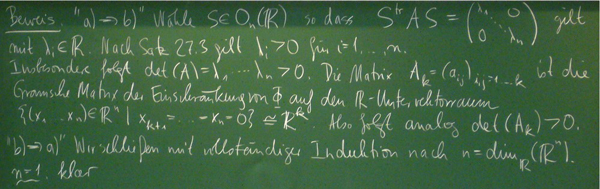 Beweis. "a) ⇒ b)" Wähle S ∈ Oₙ(ℝ) so dass Sᵗʳ A S = (λ₁ 0 ⋱ 0 λₙ) gilt
mit λᵢ ∈ ℝ. Nach Satz 27.3 gilt λᵢ > 0 für i = 1, ... n.
Insbesondere folgt det(A) = λ₁ ··· λₙ > 0. Die Matrix Aₖ = (aᵢⱼ)ᵢ,ⱼ₌₁...ₖ ist die
Gramsche Matrix der Einschränkung von Φ auf den ℝ-Untervektorraum
{(x₁ ... xₙ) ∈ ℝⁿ | xₖ₊₁ = ... = xₙ = 0} ≅ ℝᵏ. Also folgt analog det(Aₖ) > 0.
"b) ⇒ a)" Wir schließen mit vollständiger Induktion nach n = dim_ℝ(ℝⁿ).
n = 1. klar